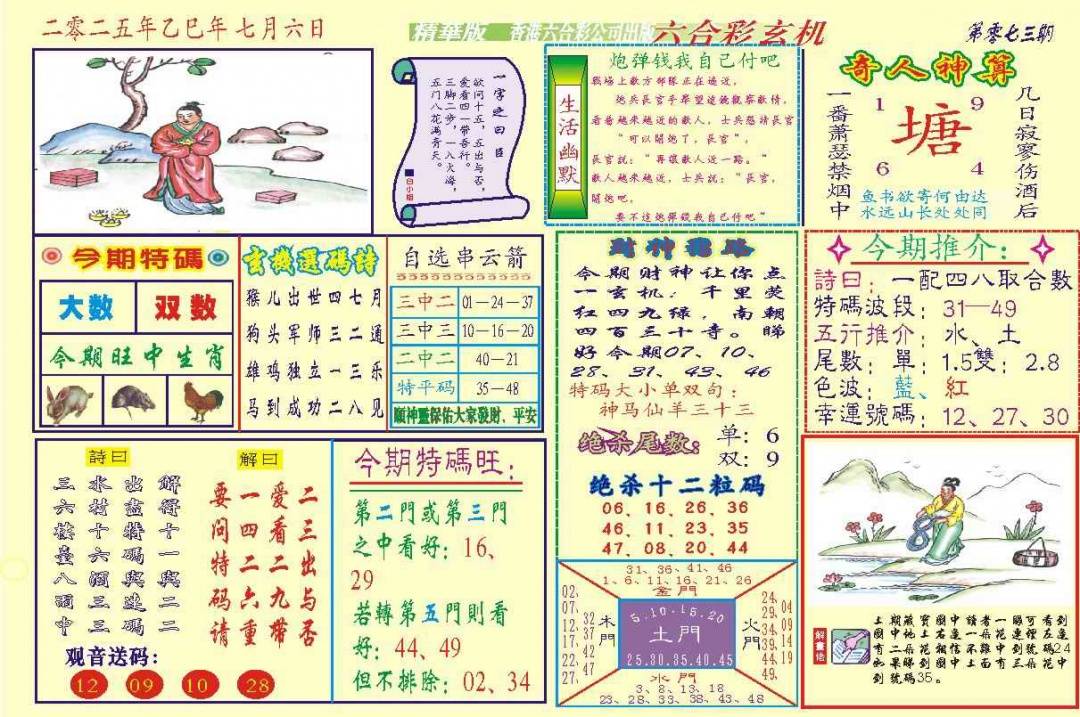 二零二五年乙巳年七月六日
精華版 香港六合彩公司出版 六合彩玄机
第零七三期
一字之曰:
欲问十五,五出与否,
爱看四一带吾行。
三脚二步,一入火海,
五门八花满青天。
白小姐
生活幽默
炮弹钱我自己付吧
戰場上敵方部隊正在逼近,
炮兵長官手舉望遠鏡觀察敵情,
看着越来越近的敵人,士兵懇請長官
“可以開炮了,長官”
長官説:“再讓敵人近一路。”
敵人越来越近,士兵説:“長官,
開炮吧,
要不這炮彈錢我自己付吧”
奇人神算
一番萧瑟禁烟中
1 9
塘
6 4
几日寂寥伤酒后
鱼书欲寄何由达
水远山长处处同
今期特碼
大数 双数
今期旺中生肖
玄機選碼詩
猴儿出世四七月
狗头军师三二通
雄鸡独立一三乐
马到成功二八见
自选串云箭
三中二 01—24—37
三中三 10—16—20
二中二 40—21
特平码 35—48
順神靈保佑大家發財、平安
财神指路
今期财神让你点
一玄机:千里荧
红四九绿,南朝
四百三十寺。睇
好今期07、10、
28、31、43、46
特码大小单双句:
神马仙羊三十三
绝杀尾数: 单:6
双:9
绝杀十二粒码
06、16、26、36
46、11、23、35
47、08、20、44
今期推介:
詩曰:一配四八取合數
特碼波段:31—49
五行推介:水、土
尾數:單:1.5雙:2.8
色波:藍、紅
幸運號碼:12、27、30
詩曰
解得十一與二二
出盡特碼與連三
水村十六酒三碼
三六樓臺八雨中
解曰
二三出与否
爱看二九带
一四二六重
要问特码请
观音送码:
12 09 10 28
今期特碼旺:
第二門或第三門
之中看好:16、
29
若轉第五門則看
好:44、49
但不排除:02、34
31、36、41、46
1、6、11、16、21、26
金門
02、07、12、17、22、27、
32、37、42、47
木門
5.10.15.20
土門
25.30.35.40.45
火門
24、29、34、39、44、49、
04、09、14、19
水門
3、8、13、18
23、28、33、38、43、48
解畫佬
看到左邊24
可連號碼中
一睇到三朵花
者花有朵
讀一朵面
中邊不難上
圖右相信中
寶上花到圖
藏地朵睇
期中二果
土圖有如到號碼35。